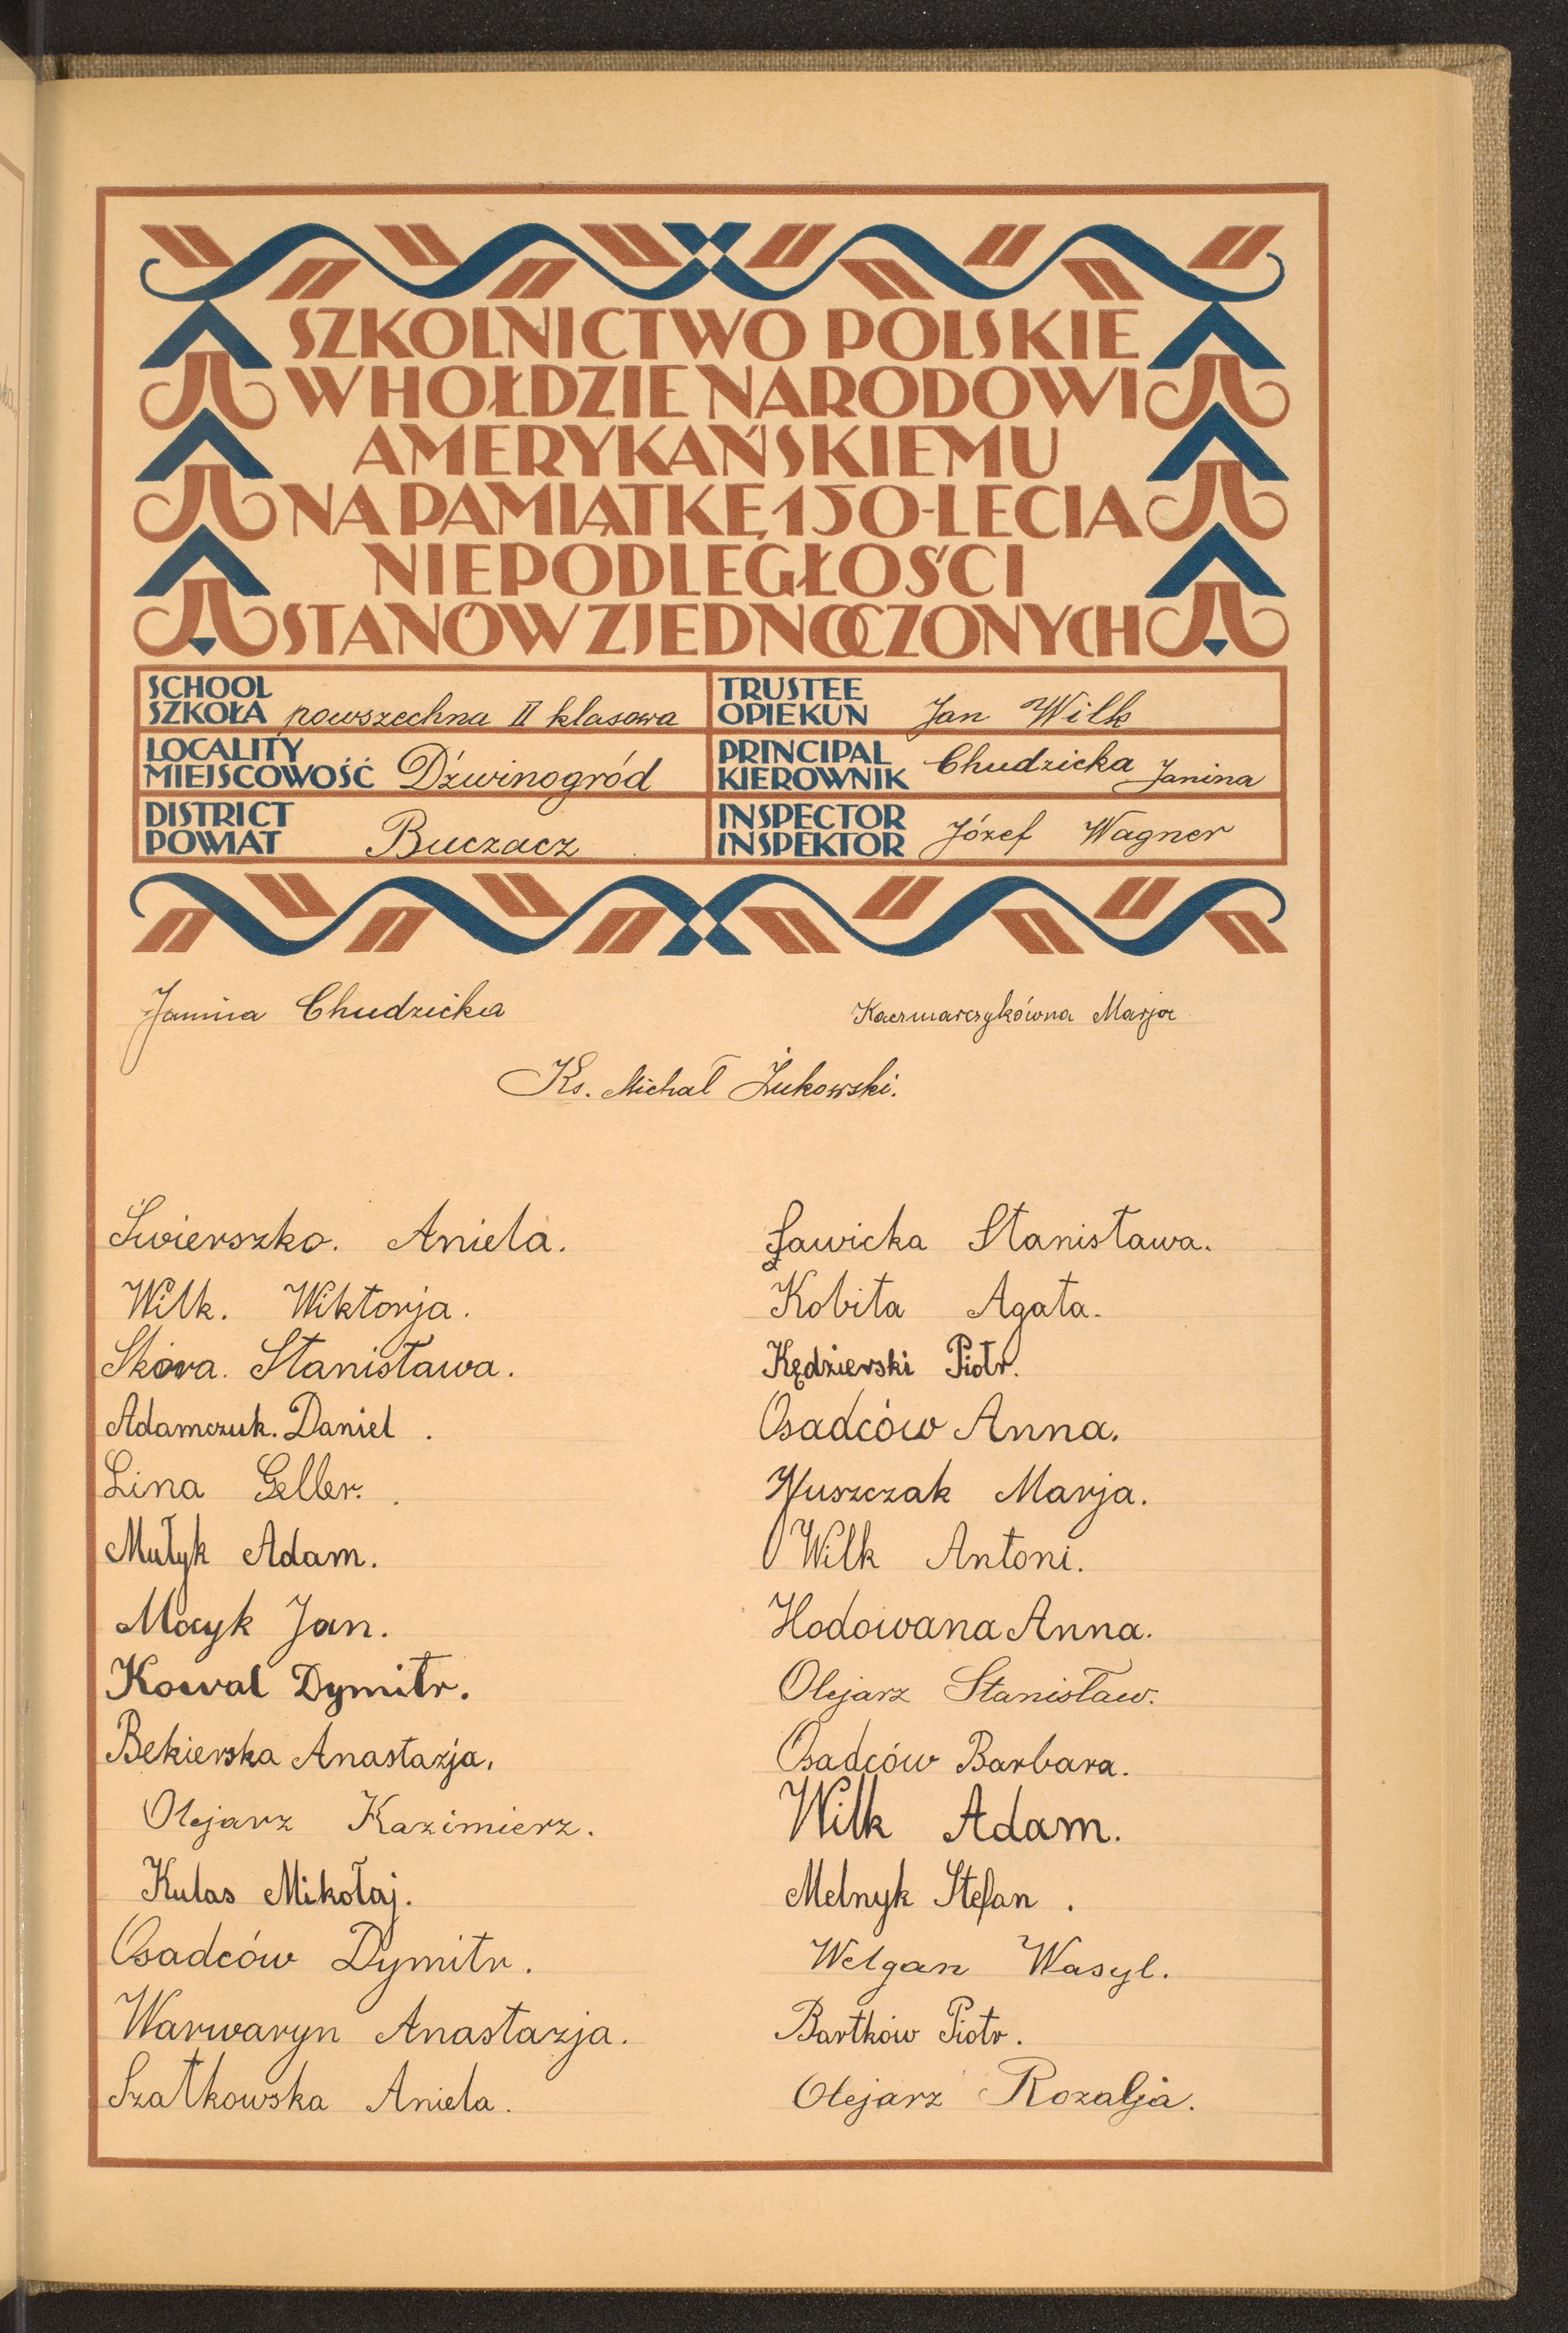 SZKOLNICTWO POLSKIE
W HOŁDZIE NARODOWI
AMERYKAŃSKIEMU
NA PAMIĄTKĘ 150-LECIA
NIEPODLEGŁOŚCI
STANÓW ZJEDNOCZONYCH
SCHOOL
SZKOŁA powszechna II klasowa
TRUSTEE
OPIEKUN Jan Wilk
LOCALITY
MIEJSCOWOŚĆ Dźwinogród
PRINCIPAL
KIEROWNIK Chudzicka Janina
DISTRICT
POWIAT Buczacz
INSPECTOR
INSPEKTOR Józef Wagner
Janina Chudzicka
Kaczmarczykówna Marja
Ks. Michał Żukowski.
Świerszko. Aniela.
Wilk. Wiktorja.
Skóra. Stanisława.
Adamczuk. Daniel.
Lina Geller.
Mułyk Adam.
Macyk Jan.
Kowal Dymitr.
Bekierska Anastazja.
Olejarz Kazimierz.
Kulas Mikołaj.
Osadców Dymitr.
Warwaryn Anastazja.
Szatkowska Aniela.
Sawicka Stanisława.
Kobita Agata.
Kędzierski Piotr.
Osadców Anna.
Marja.
Wilk Antoni.
Hodowana Anna.
Olejarz Stanisław.
Osadców Barbara.
Wilk Adam.
Melnyk Stefan.
Welgan Wasyl.
Bartków Piotr.
Olejarz Rozalja.